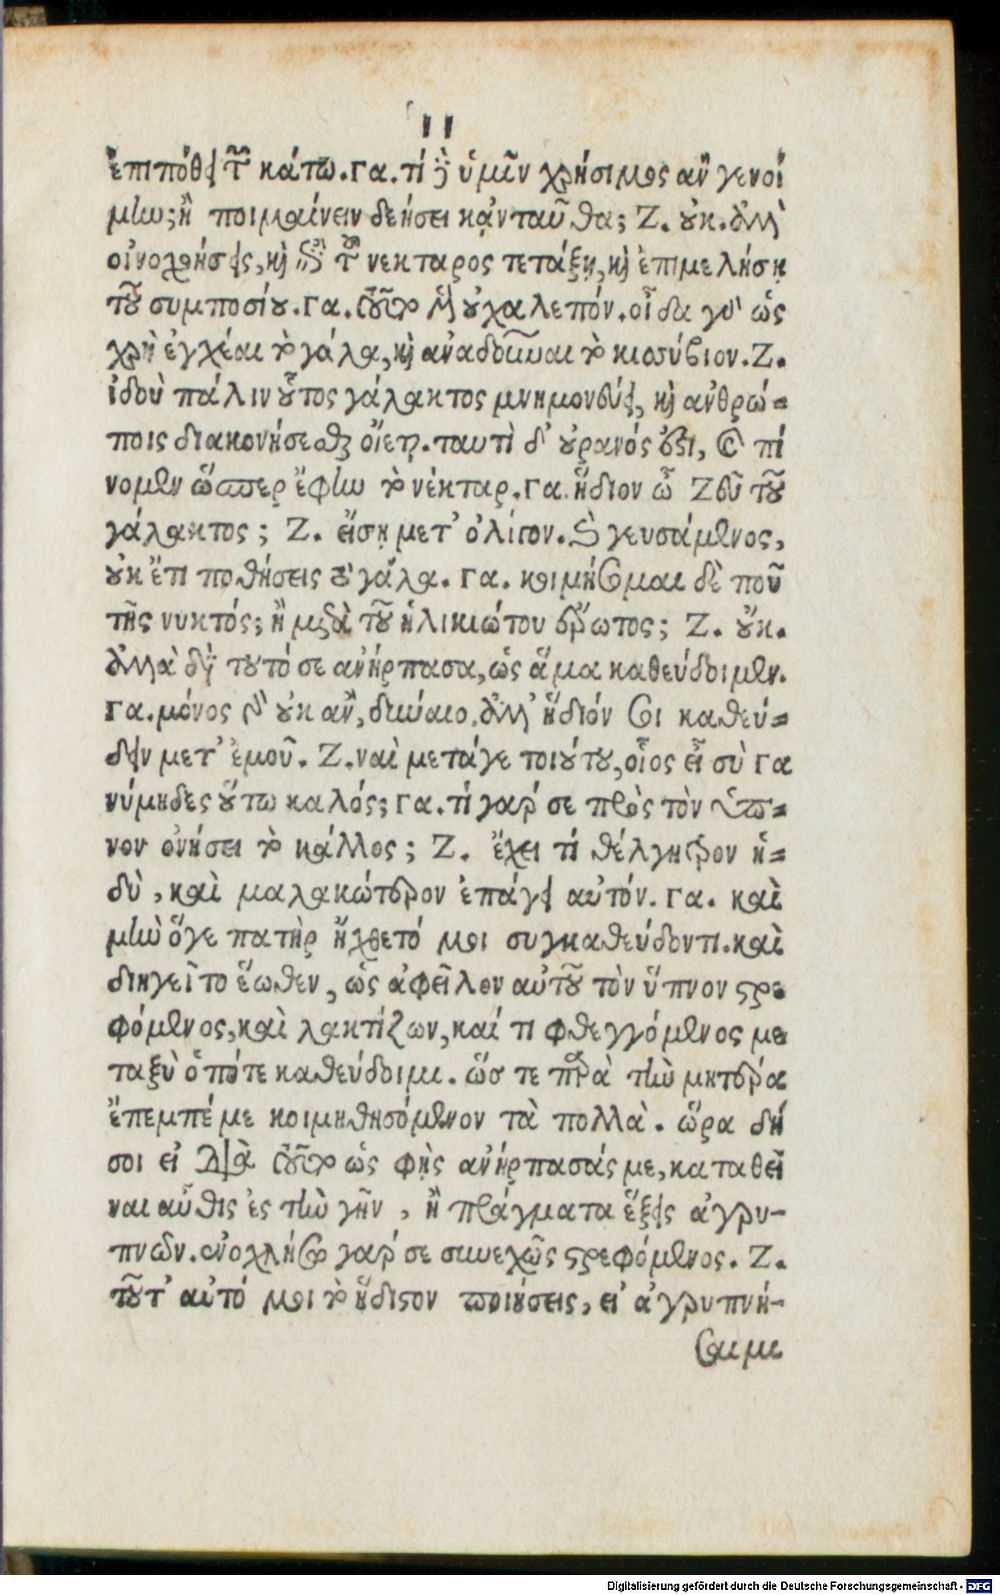 11
ἐπιπόθει τῶν κάτω. Γα. τί δὲ ὑμῖν χρήσιμος ἂν γενοί
μην; ἢ ποιμαίνειν δεήσει κᾀνταῦθα; Ζ. οὐκ. ἀλλ'
οἰνοχοήσεις, καὶ ἐπὶ τοῦ νέκταρος τετάξῃ, καὶ ἐπιμελήσῃ
τοῦ συμποσίου. Γα. τοῦτο μὲν οὐ χαλεπόν. οἶδα γὰρ ὡς
χρὴ ἐγχέαι τὸ γάλα, καὶ ἀναδοῦναι τὸ κισσύβιον. Ζ.
ἰδοὺ πάλιν οὗτος γάλακτος μνημονεύει, καὶ ἀνθρώ-
ποις διακονήσεσθαι οἴεται. ταυτὶ δ' οὐρανός ἐστι, καὶ πί
νομεν ὥσπερ ἔφην τὸ νέκταρ. Γα. ἥδιον ὦ Ζεῦ τοῦ
γάλακτος; Ζ. εἴσῃ μετ' ὀλίγον. καὶ γευσάμενος,
οὐκ ἔτι ποθήσεις τὸ γάλα. Γα. κοιμήσομαι δὲ ποῦ
τῆς νυκτός; ἢ μετὰ τοῦ ἡλικιώτου ἔρωτος; Ζ. οὔκ.
ἀλλὰ διὰ τουτό σε ἀνήρπασα, ὡς ἅμα καθεύδοιμεν.
Γα. μόνος γὰρ οὐκ ἂν, δύναιο, ἀλλ' ἥδιόν σοι καθεύ-
δειν μετ' ἐμοῦ. Ζ. ναὶ μετάγε τοιούτου, οἷος εἶ σὺ Γα
νύμηδες οὕτω καλός; Γα. τί γάρ σε πρὸς τὸν ὕπ-
νον ὀνήσει τὸ κάλλος; Ζ. ἔχει τί θέλγητρον ἡ-
δὺ, καὶ μαλακώτερον ἐπάγει αὐτόν. Γα. καὶ
μὴν ὅγε πατὴρ ἤχθετό μοι συγκαθεύδοντι. καὶ
διηγεῖτο ἕωθεν, ὡς ἀφεῖλον αὐτοῦ τὸν ὕπνον στρε
φόμενος, καὶ λακτίζων, καί τι φθεγγόμενος με
ταξὺ ὁπότε καθεύδοιμι. ὥς τε παρὰ τὴν μητέρα
ἔπεμπέ με κοιμηθησόμενον τὰ πολλὰ. ὥρα δή
σοι εἰ διὰ τοῦτο ὡς φῂς ἀνήρπασάς με, καταθεῖ
ναι αὖθις ἐς τὴν γῆν, ἢ πράγματα ἕξεις ἀγρυ-
πνῶν. ἐνοχλήσω γάρ σε συνεχῶς στρεφόμενος. Ζ.
τοῦτ' αὐτό μοι τὸ ἥδιστον ποιήσεις, εἰ ἀγρυπνή-
σαιμι
Digitalisierung gefördert durch die Deutsche Forschungsgemeinschaft - DFG